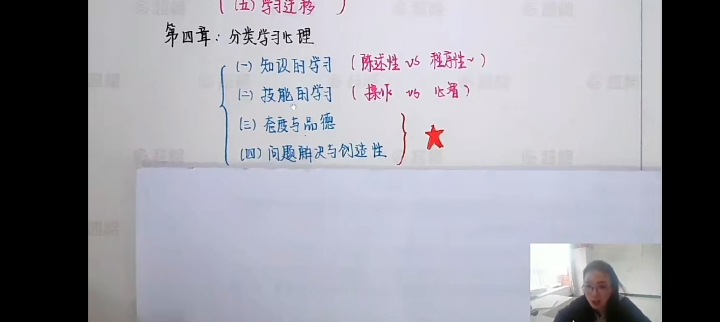 (五) 学习迁移 )
第四章：分类学习心理
(一) 知识的学习 (陈述性 vs 程序性~)
(二) 技能的学习 (操作 vs 心智)
(三) 态度与品德
(四) 问题解决与创造性